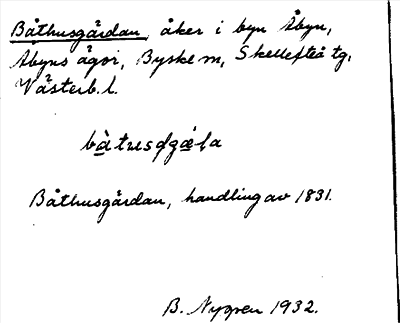 Båthusgärdan, åker i byn Åbyn,
Åbyns ägor, Byske sn, Skellefteå tg,
Västerb. l.
Båthusgärdan, handling av 1831.
B. Nygren 1932.